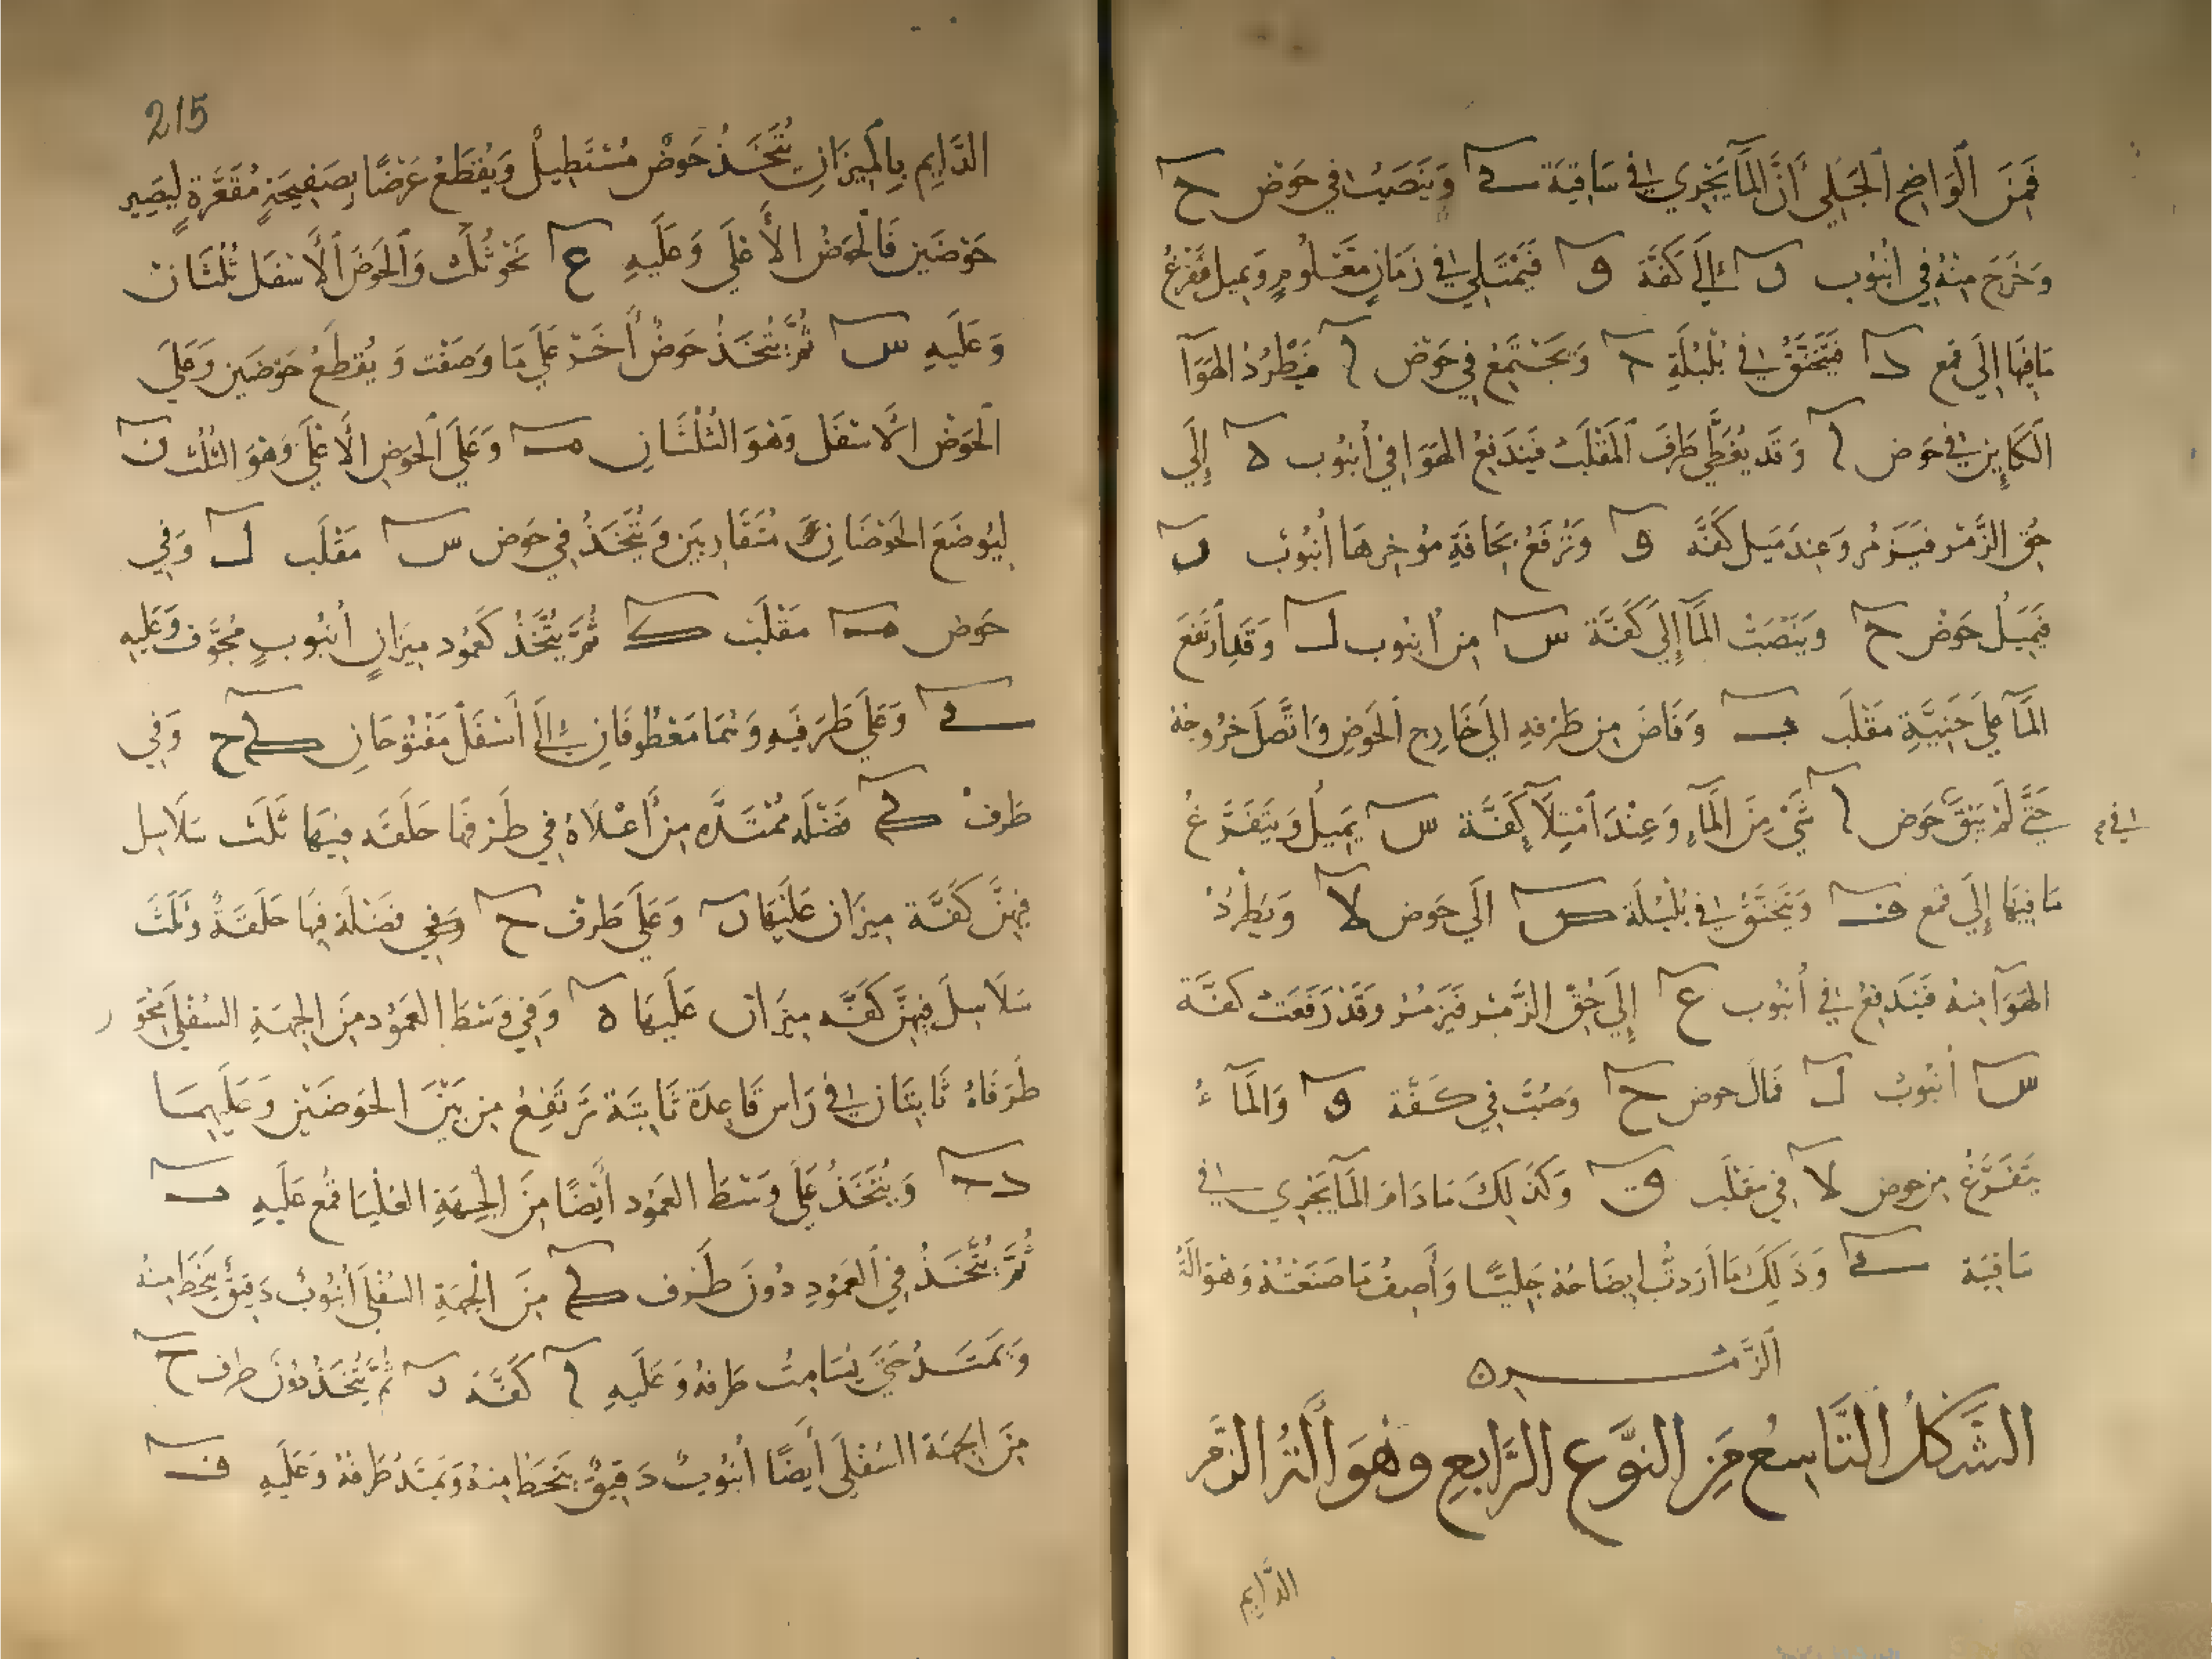 فَمِنَ الْوَاضِحِ الْجَلِي أَنَّ الْمَآ يَجْرِي فِي سَاقِيَة ـے وَيَنْصَبُّ فِي حَوْض ح
وَخَرَجَ مِنْهُ فِي انْبُوب ں إِلَى كَفَّة و فَيَمْتَلِي فِي زَمَانٍ مَعْلُومٍ وَيَمِيل فَيُفَرِّغُ
مَا فِيهَا إِلَى قمع د فَيَخْتَنِقُ فِي بُلْبُلَةِ وَيَجْتَمِعُ فِي حَوْض ا فَيَطْرُدُ الْهَوَآ
الْكَايِن فِي حَوض ا وَقَد يُغَطِّي طَرَفَ الْمَقْلَب فَيَنْدَفِعُ الهَوَا فِي أُنْبُوب ه إِلَى
حُقِّ الزَّمْر فَيَزمُر وَعِندَ مَيل كَفَّة و وَتُرفَعُ بِحَافَةِ مُؤَخِرِهَا أُنْبُوب ں
فَيَمِيلُ حَوْض ح وَيَنْصَبُّ الْمَآ إِلَى كَفَّة س مِن أُنبُوب ل وَقَد ارتَفَعَ
الْمَآ عَلَى حَنِيَّةِ مَقْلَب ب وَفَاضَ مِن طَرَفِهِ الَى خَارِجِ الْحَوضِ وَاتَّصَلَ خرُوجهُ
حَتَّى لَمْ يَبْقَ حَوض ا شَيْ مِنَ الْمَآءِ وَعِنْدَ امْتِلَآ كَفَّة س يَمِيلُ وَيَتَفَرَّغُ
في
مَا فِيهَا إِلَى قمع ف وَيَخْتَنِقُ فِي بُلْبُلَة ص الَى حَوض لا وَيَطْرُدُ
الهَوَآ مِنهُ فَيَنْدَفِعُ فِي أُنبُوب ع إِلَى حُقِّ الزَّمْر فَيَزمُرُ وَقَدْ رَفَعَت كَفَّة
س أُنبُوبُ ل فَمَالَ حوض ح وَصُبَّ فِي كَفَّة و وَالْمَآءُ
يَتَفَرَّغُ مِن حوض لا فِي مَقْلَب ق وَكَذَلِكَ مَا دَامَ الْمَآ يَجْرِي فِي
سَاقِيَة ـے وَذَلِكَ مَا ارَدتُّ ايضَاحُهُ جَلِيًّا وَأَصِفُ مَا صَنَعْتُهُ وَهُوَ الَة
الزَّمْـــر ه
الشَّكلُ التَّاسِعُ مِنَ النَّوع الرَّابع وهُوَ الَةُ الزَّمر
الدَّايِم
215
الدَّايِم بِالْمِيزَانِ يُتَّخَذُ حَوضُ مُسْتَطِيلُ وَيُقطَعُ عَرْضًا بِصَفِيحَةٍ مُقَعَّرَةٍ لِيَصِير
حَوْضَين فَالْحَوضُ الأَعْلَى وَعَلَيهِ ع نَحو ثُلُث وَالْحَوضَ الأَسْفَل ثُلثَان
وَعَلَيهِ س ثُمَّ يُتَّخَذُ حَوضُ أَخَر عَلَى مَا وَصَفْت وَيُقطَعُ حَوضَين وَعَلَى
الْحَوْض الأَسْفَل وَهُوَ الثُّلُثَانِ مـ وَعَلَى الْحَوضِ الأَعْلَى وَهُوَ الثُّلُث ن
لِيُوضَعَ الْحَوْضَانِ مُتَقَارِبَين وَيُتَّخَذُ فِي حَوض س مَقْلَب ل وَفِي
حَوض مـ مَقْلَب ك ثُمَّ يُتَّخَذُ كَعَمُود مِيزَانٍ أُنبُوبٍ مُجَوَّف وَعَلَيهِ
ـے وَعَلَى طَرَفَيهِ وَهُمَا مَعْطُوفَانِ إِلَى أَسْفَلَ مَفْتُوحَانِ ك ح وَفِي
طَرف ك فَضْلَه مُمْتَدَّه مِنْ أَعْلَاهُ فِي طَرَفهَا حَلقَه فِيهَا ثَلَث سَلَاسِل
فِيهِنَّ كَفَّة مِيزَان عَلَيهَا ں وَعَلَى طَرَف ح وَفِي فَضلَة فِيهَا حَلقَةُ وَثَلَثَ
سَلَاسِلَ فِيهِنَّ كَفَّه مِيزَان عَلَيهَا ه وَفِي وَسَط العَمُود مِنَ الجِهَةِ السُفلَى مِحْوَر
طَرَفَاهُ ثَابِتَان فِي رَاس قَاعِدَة ثَابِتَة تَرتَفِعُ مِن بَيْنَ الحَوضَيْنِ وَعَلَيهِمَا
د وَيُتَّخَذُ عَلَى وَسَط العَمُود أَيضًا مِنَ الْجِهَةِ العُليَا قمع عَلَيهِ
ثُمَّ يُتَّخَذُ فِي الْعَمُودِ دُونَ طَرف ك مِنَ الْجِهَةِ السُفلَى أُنبُوبٌ دَقِيقٌ يَنْحَطُ مِنهُ
وَيَمتَدُ حَتَّى يُسَامِتُ طَرفهُ وَعَلَيهِ ا كَفَّة ں ثُمَّ يُتَّخَذُ دُونَ طرف ح
مِنَ الجِهَة السُفلَى أَيضًا أُنبُوبٌ دَقِيقٌ يَنحَطُ مِنهُ وَيَمتَدُ طَرَفهُ وَعَلَيهِ ف